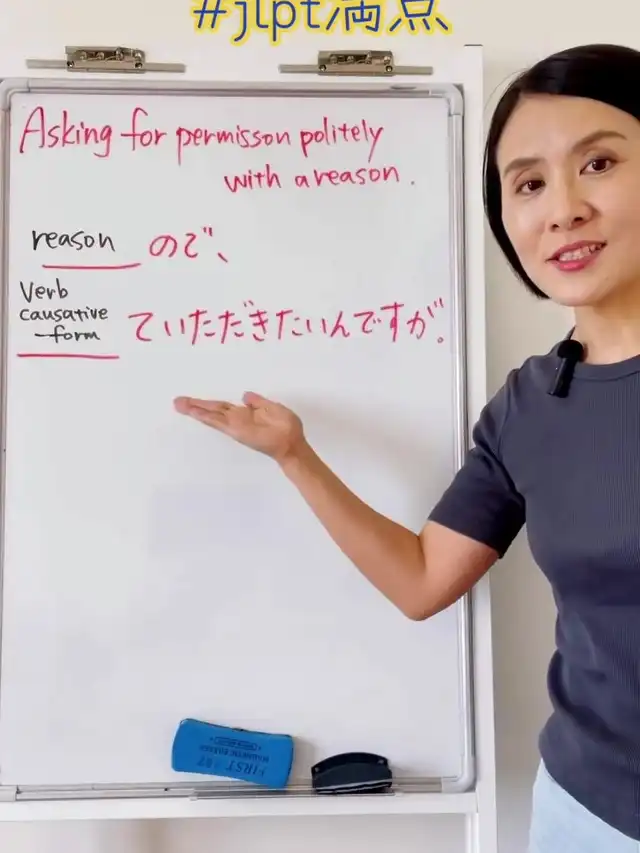 #jlpt満点
Asking for permisson politely
with a reason.
reason ので、
Verb
causative
-form ていただきたいんですが。
FIRST